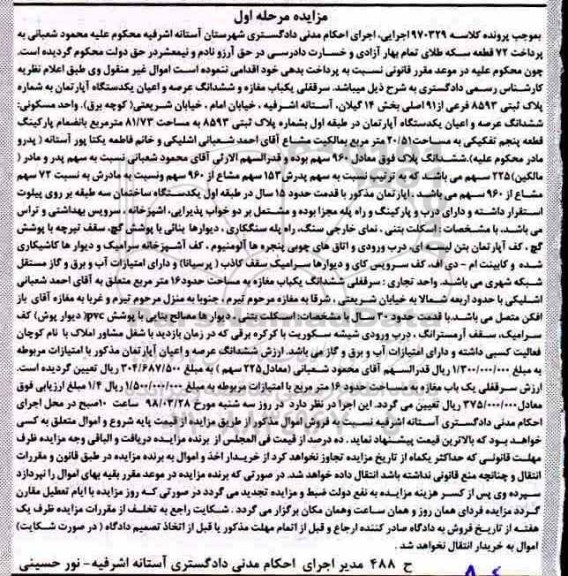 مزایده مرحله اول
بموجب پرونده کلاسه ۹۷۰۳۲۹ اجرایی، اجرای احکام مدنی دادگستری شهرستان آستانه اشرفیه محکوم علیه محمود شعبانی به
پرداخت ۷۲ قطعه سکه طلای تمام بهار آزادی و خسارت دادرسی در حق آرزو نادم و نیمعشردر حق دولت محکوم گردیده است.
چون محکوم علیه در موعد مقرر قانونی نسبت به پرداخت بدهی خود اقدامی ننموده است اموال غیر منقول وی طبق اعلام نظریه
کارشناس رسمی دادگستری به شرح ذیل میباشد. سرقفلی یکباب مغازه و ششدانگ عرصه و اعیان یکدستگاه آپارتمان به شماره
پلاک ثبتی ۸۵۹۳ فرعی از۹۱ اصلی بخش ۱۴ گیلان، آستانه اشرفیه ، خیابان امام ، خیابان شریعتی( کوچه برق). واحد مسکونی:
ششدانگ عرصه و اعیان یکدستگاه آپارتمان در طبقه اول بشماره پلاک ثبتی ۸۵۹۳ به مساحت ۸۱/۷۳ مترمربع بانضمام پارکینگ
قطعه پنجم تفکیکی به مساحت ۱۰/۵۱ متر مربع بمالکیت مشاع آقای احمد شعبانی اشلیکی و خانم فاطمه یکتا پور آستانه ( پدرو
مادر محکوم علیه).ششدانگ پلاک فوق معادل ۹۶۰ سهم بوده و قدرالسهم الارثی آقای محمود شعبانی نسبت به سهم پدر و مادر (
مالکین) ۲۲۵ سهم می باشد که به ترتیب نسبت به سهم پدرش۱۵۳ سهم مشاع از ۹۶۰ سهم ونسبت به مادرش به نسبت ۷۲ سهم
مشاع از ۹۶۰ سهم می باشد . آپارتمان مذکور با قدمت حدود ۱۵ سال در طبقه اول یکدستگاه ساختمان سه طبقه بر روی پیلوت
استقرار داشته و دارای درب و پارکینگ و راه پله مجزا بوده و مشتمل بر دو خواب پذیرایی، اشپزخانه ، سرویس بهداشتی و تراس
می باشد، با مشخصات : اسکلت بتنی ، نمای خارجی سنگ، راه پله سنگکاری ، دیوارها بنائی با پوشش گچ، سقف تیرچه با پوشش
گچ ، کف آپارتمان بتن لیسه ای، درب ورودی و اتاق های چوبی پنجره ها آلومنیوم ، کف آشپزخانه سرامیک و دیوار ها کاشیکاری
شده و کابینت ام - دی اف، کف سرویس کای و دیوارها سرامیک سقف کاذب ( پرسیانا) و دارای امتیازات آب و برق و گاز مستقل
شبکه شهری می باشد. واحد تجاری : سرقفلی ششدانگ یکباب مغازه به مساحت حدود۱۶ متر مربع متعلق به آقای احمد شعبانی
اشلیکی با حدود اربعه شمالا به خیابان شریعتی ، شرقا به مغازه مرحوم تیرم ، جنوبا به منزل مرحوم تیرم و غربا به مغازه آقای باز
افکن متصل می باشد.با قدمت حدود ۳۰ سال با مشخصات: اسکلت بتنی ، دیوار ها مصالح بنایی با پوشش pvc( دیوار پوش) کف
سرامیک، سقف آرمسترانگ ، درب ورودی شیشه سکوریت با کرکره برقی که در زمان بازدید با شغل مشاور املاک با نام کوچان
فعالیت کسبی داشته و دارای امتیازات آب و برق و گاز می باشد. ارزش ششدانگ عرصه و اعیان آپارتمان مذکور با امتیازات مربوطه
به مبلغ ۱/۳۰۰/۰۰۰/۰۰۰ ریال قدرالسهم آقای محمود شعبانی (معادل۲۲۵ سهم ) به مبلغ ۳۰۴/۶۸۷/۵۰۰ ریال تعیین گردیده است.
ارزش سرقفلی یک باب مغازه به مساحت حدود ۱۶ متر مربع با امتیازات مربوطه به مبلغ ۱/۵۰۰/۰۰۰/۰۰۰ ریال ۱/۴ مبلغ ارزیابی فوق
معادل ۳۷۵/۰۰۰/۰۰۰ ریال تعیین می گردد. این اجرا در نظر دارد در روز سه شنبه مورخ ۹۸/۰۳/۲۸ ساعت ۱۰صبح در محل اجرای
احکام مدنی دادگستری آستانه اشرفیه نسبت به فروش اموال مذکور از طریق مزایده از قیمت پایه شروع و اموال متعلق به کسی
خواهد بود که بالاترین قیمت پیشنهاد نماید . ده درصد از قیمت فی المجلس از برنده مزایده دریافت و الباقی وجه مزایده ظرف
مهلت قانونی که حداکثر یکماه از تاریخ مزایده تجاوز نخواهد کرد از خریدار اخذ و اموال به برنده مزایده در طبق قانون و مقررات
انتقال و چنانچه منع قانونی نداشته باشد انتقال داده خواهد شد. در صورتی که برنده مزایده در موعد مقرر بقیه بهای اموال را نپردازد
سپرده وی پس از کسر هزینه مزایده به نفع دولت ضبط و مزایده تجدید می گردد در صورتی که روز مزایده با ایام تعطیل مقارن
گردد مزایده فردای همان روز و همان ساعت وهمان مکان برگزار می گردد . شکایت راجع به تخلف از مقررات مزایده ظرف یک
هفته از تاریخ فروش به دادگاه صادر کننده ارجاع و قبل از اتمام مهلت مذکور یا قبل از اتخاذ تصمیم دادگاه ( در صورت شکایت)
اموال به خریدار انتقال نخواهد شد .
ح ۴۸۸ مدیر اجرای احکام مدنی دادگستری آستانه اشرفیه- نور حسینی